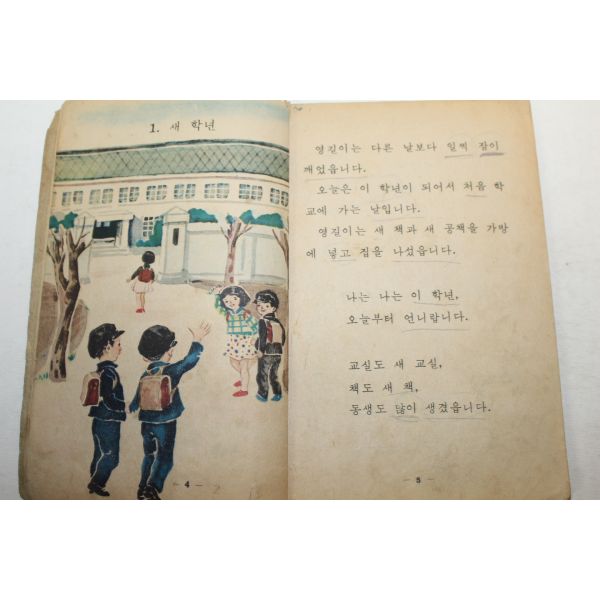 1. 새 학년
- 4 -
영길이는 다른 날보다 일찍 잠이
깨었읍니다.
오늘은 이 학년이 되어서 처음 학
교에 가는 날입니다.
영길이는 새 책과 새 공책을 가방
에 넣고 집을 나섰읍니다.
나는 나는 이 학년,
오늘부터 언니랍니다.
교실도 새 교실,
책도 새 책,
동생도 많이 생겼읍니다.
- 5 -